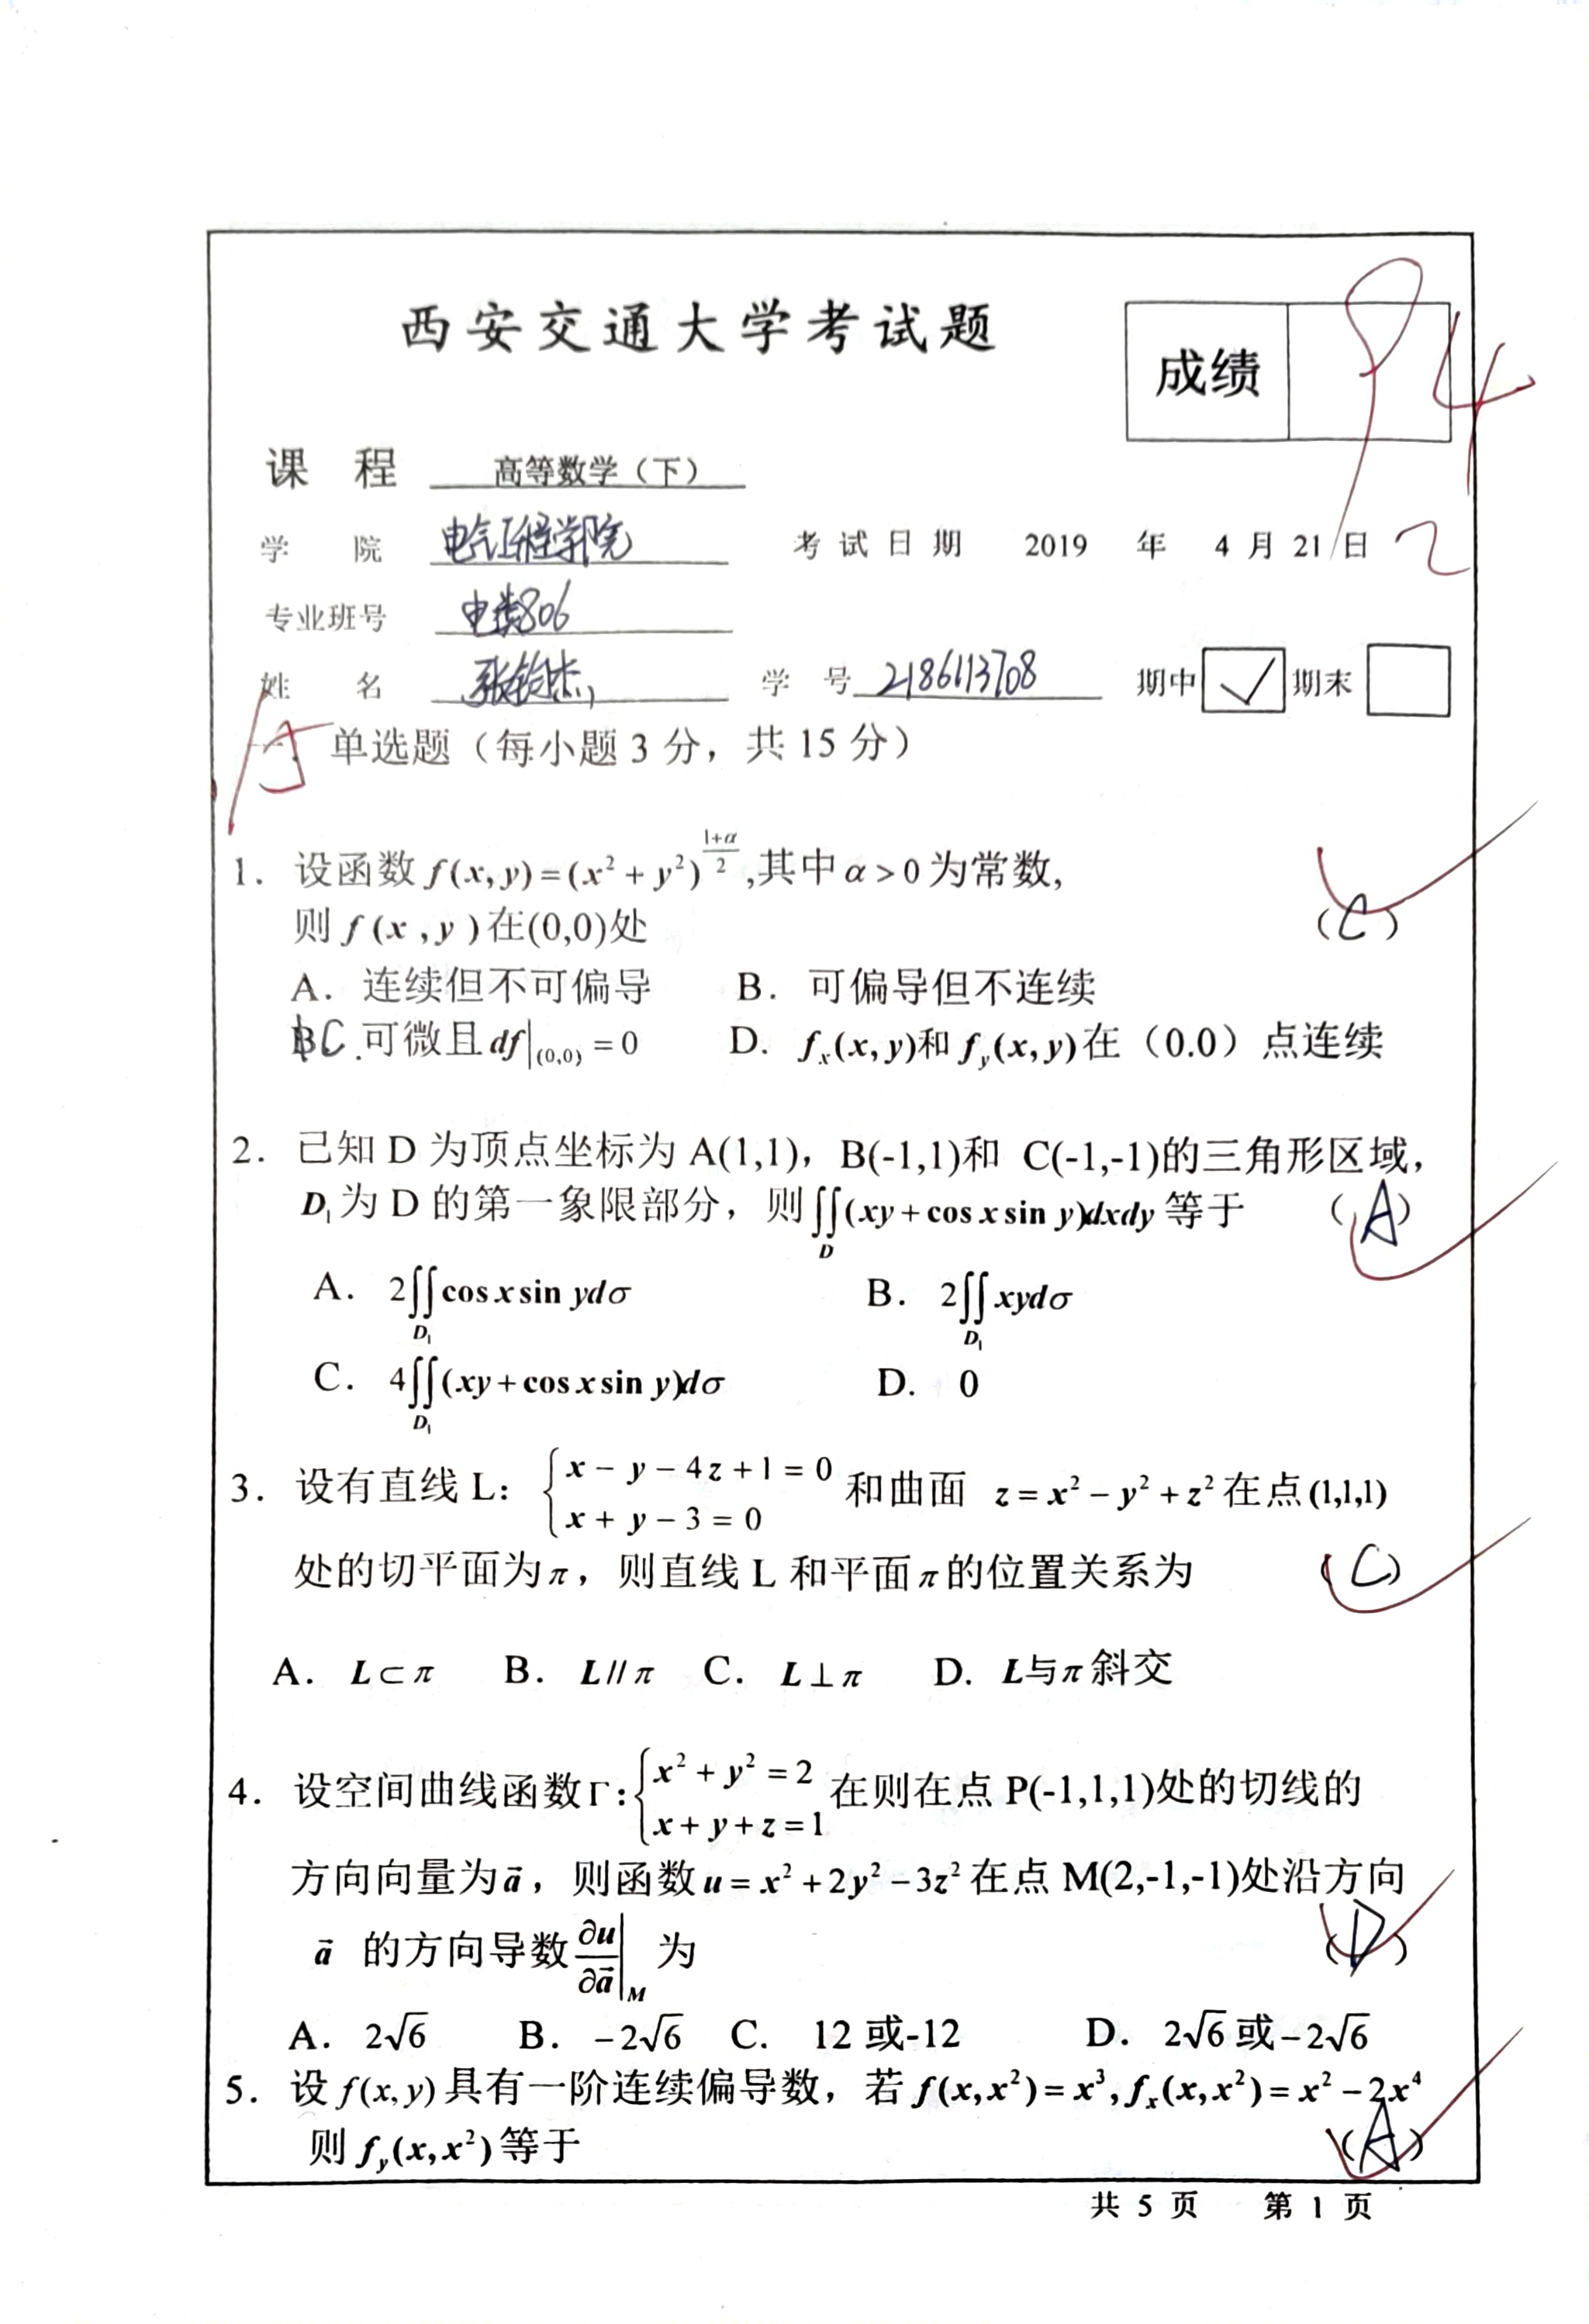 西安交通大学考试题
成绩
94
课 程 高等数学（下）
学 院 电气工程学院 考试日期 2019 年 4 月 21 日
2
专业班号 电类806
姓 名 张钧杰 学 号 2186113708 期中 ✓ 期末
15
一、单选题（每小题 3 分，共 15 分）
1. 设函数 f(x,y)=(x²+y²)^{\frac{1+α}{2}},其中 α>0 为常数,
则 f(x,y)在(0,0)处 (C)
A. 连续但不可偏导 B. 可偏导但不连续
C.可微且 df|_{(0,0)}=0 D. f_x(x,y)和 f_y(x,y)在（0.0）点连续
2. 已知 D 为顶点坐标为 A(1,1)，B(-1,1)和 C(-1,-1)的三角形区域，
D₁为 D 的第一象限部分，则∬_D(xy+cos x sin y)dxdy 等于 (A)
A. 2∬_{D₁}cos x sin ydσ B. 2∬_{D₁}xydσ
C. 4∬_{D₁}(xy+cos x sin y)dσ D. 0
3. 设有直线 L: {x-y-4z+1=0 x+y-3=0 和曲面 z=x²-y²+z²在点(1,1,1)
处的切平面为π，则直线 L 和平面π的位置关系为 (C)
A. L⊂π B. L//π C. L⊥π D. L与π斜交
4. 设空间曲线函数Γ:{x²+y²=2 x+y+z=1 在则在点 P(-1,1,1)处的切线的
方向向量为a⃗，则函数u=x²+2y²-3z²在点 M(2,-1,-1)处沿方向
a⃗ 的方向导数∂u/∂a⃗|_M 为 (D)
A. 2√6 B. -2√6 C. 12 或-12 D. 2√6或-2√6
5. 设 f(x,y)具有一阶连续偏导数，若 f(x,x²)=x³,f_x(x,x²)=x²-2x⁴
则 f_y(x,x²)等于 (A)
共 5 页 第 1 页